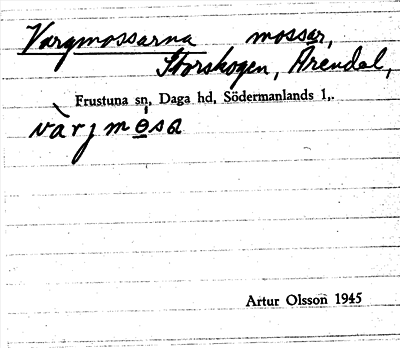 Vargmossarna mossar,
Storskogen, Arendal,
Frustuna sn, Daga hd, Södermanlands l,.
vàrjmɵsa
Artur Olsson 1945